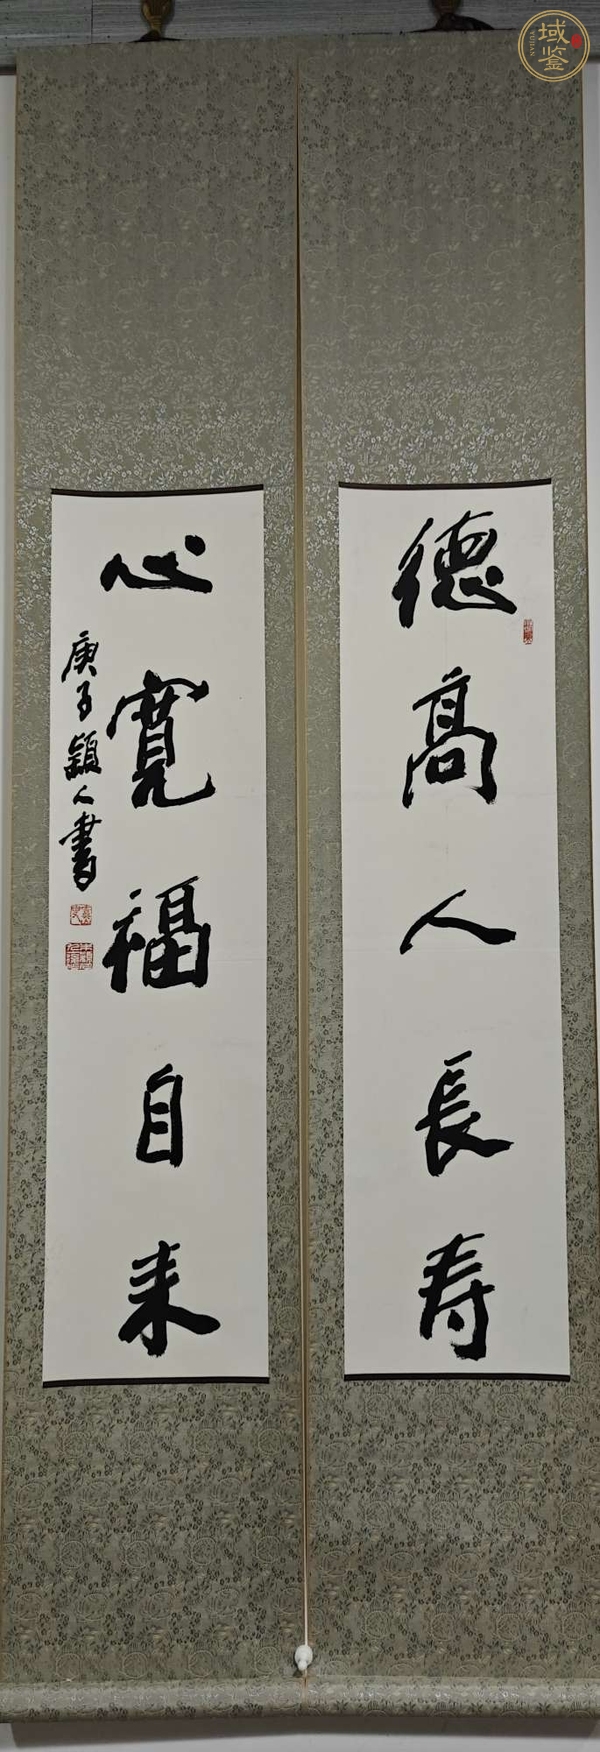 德高人長寿
心寬福自来
庚子穎人書
域鉴
YUJIAN